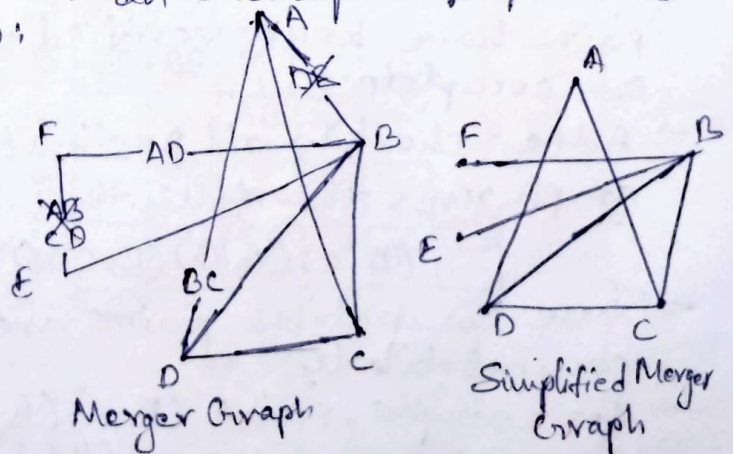 A
F
AD
B
E
BC
D
C
Merger Graph
A
F
B
E
D
C
Simplified Merger
Graph